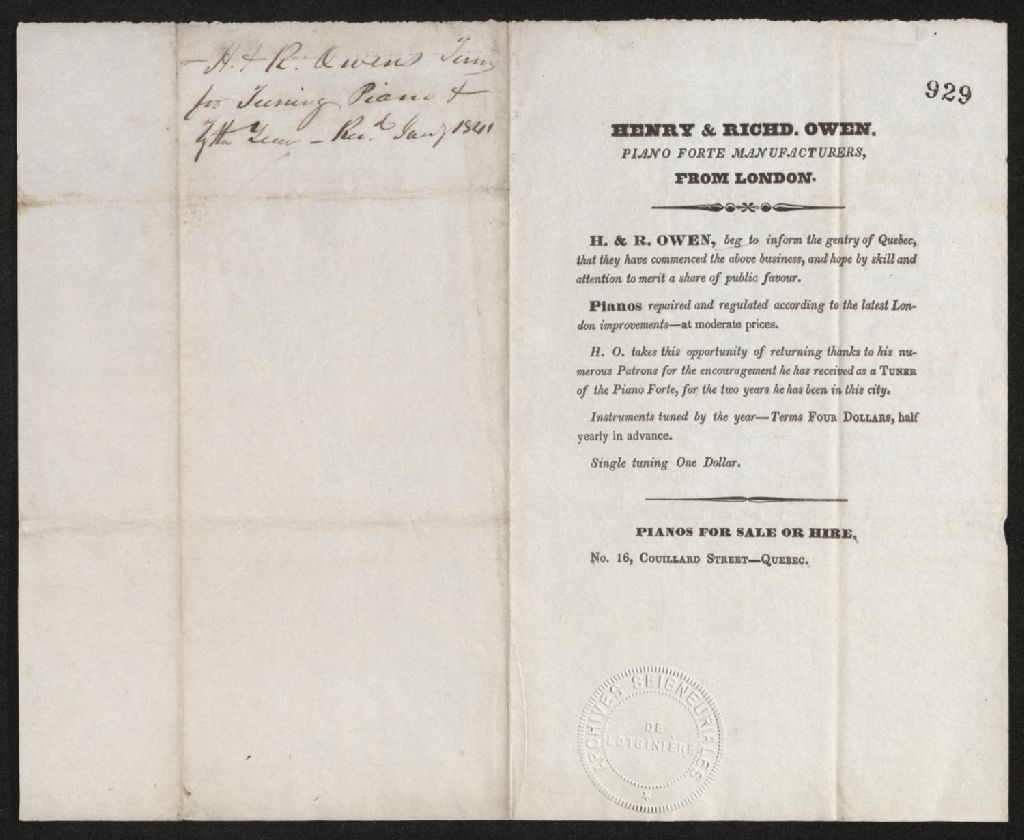 — H. & R. Owens
for Tuning Piano &
Recd. Jany 1841
929
HENRY & RICHD. OWEN,
PIANO FORTE MANUFACTURERS,
FROM LONDON.
H. & R. OWEN, beg to inform the gentry of Quebec,
that they have commenced the above business, and hope by skill and
attention to merit a share of public favour.
Pianos repaired and regulated according to the latest Lon-
don improvements—at moderate prices.
H. O. takes this opportunity of returning thanks to his nu-
merous Patrons for the encouragement he has received as a TUNER
of the Piano Forte, for the two years he has been in this city.
Instruments tuned by the year—Terms FOUR DOLLARS, half
yearly in advance.
Single tuning One Dollar.
PIANOS FOR SALE OR HIRE,
No. 16, COUILLARD STREET—QUEBEC.
ARCHIVES SEIGNEURIALES
DE
LOTBINIÈRE